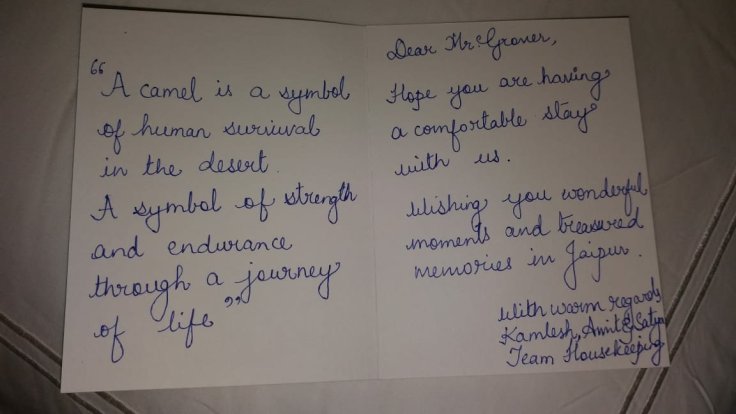 “A camel is a symbol
of human survival
in the desert.
A symbol of strength
and endurance
through a journey
of life”
Dear Mr. Grover,
Hope you are having
a comfortable stay
with us.
Wishing you wonderful
moments and treasured
memories in Jaipur.
With warm regards
Kamlesh, Amit &
Team Housekeeping